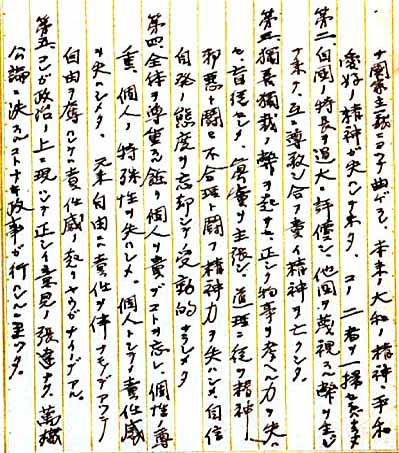 ナ国家主義ニヨテ曲ゲラレ、本来ノ大和ノ精神、平和
愛好ノ精神ガ失ハレタ。コノ二者ヲ一掃セネバナラヌ
第二、自国ノ特長ヲ過大ニ評価シ、他国ヲ蔑視スル弊ヲ生ジ
テ来タ。互ニ尊敬シ合フ美イ精神ヲ亡クシタ。
第三、独善独裁ノ弊ヲ起サセ、正シク物事ヲ考ヘル力ヲ失ハ
セ、盲従セシメ、真実ヲ主張シ、道理ニ従フ精神
邪悪ト闘ヒ不合理ト闘フ精神力ヲ失ハシメ、自信
自発ノ態度ヲ忘却シテ受動的ナラシメタ
第四、全体ヲ尊重スル餘リ個人ノ貴ブコトヲ忘レ、個性ノ尊
重、個人ノ特殊性ヲ失ハシメ、個人トシテノ責任感
ヲ失ハシメタ。元来自由ニハ責任ヲ伴フモノデアツテ
自由ヲ奪ハレテハ責任感ノ起リヤウガナイノデアル。
第五、己ガ政治ノ上ニ現ハレテ正シイ意見ノ発達ナク、萬機
公論ニ決スルコトナキ政事ガ行ハレルニ至ツタ。